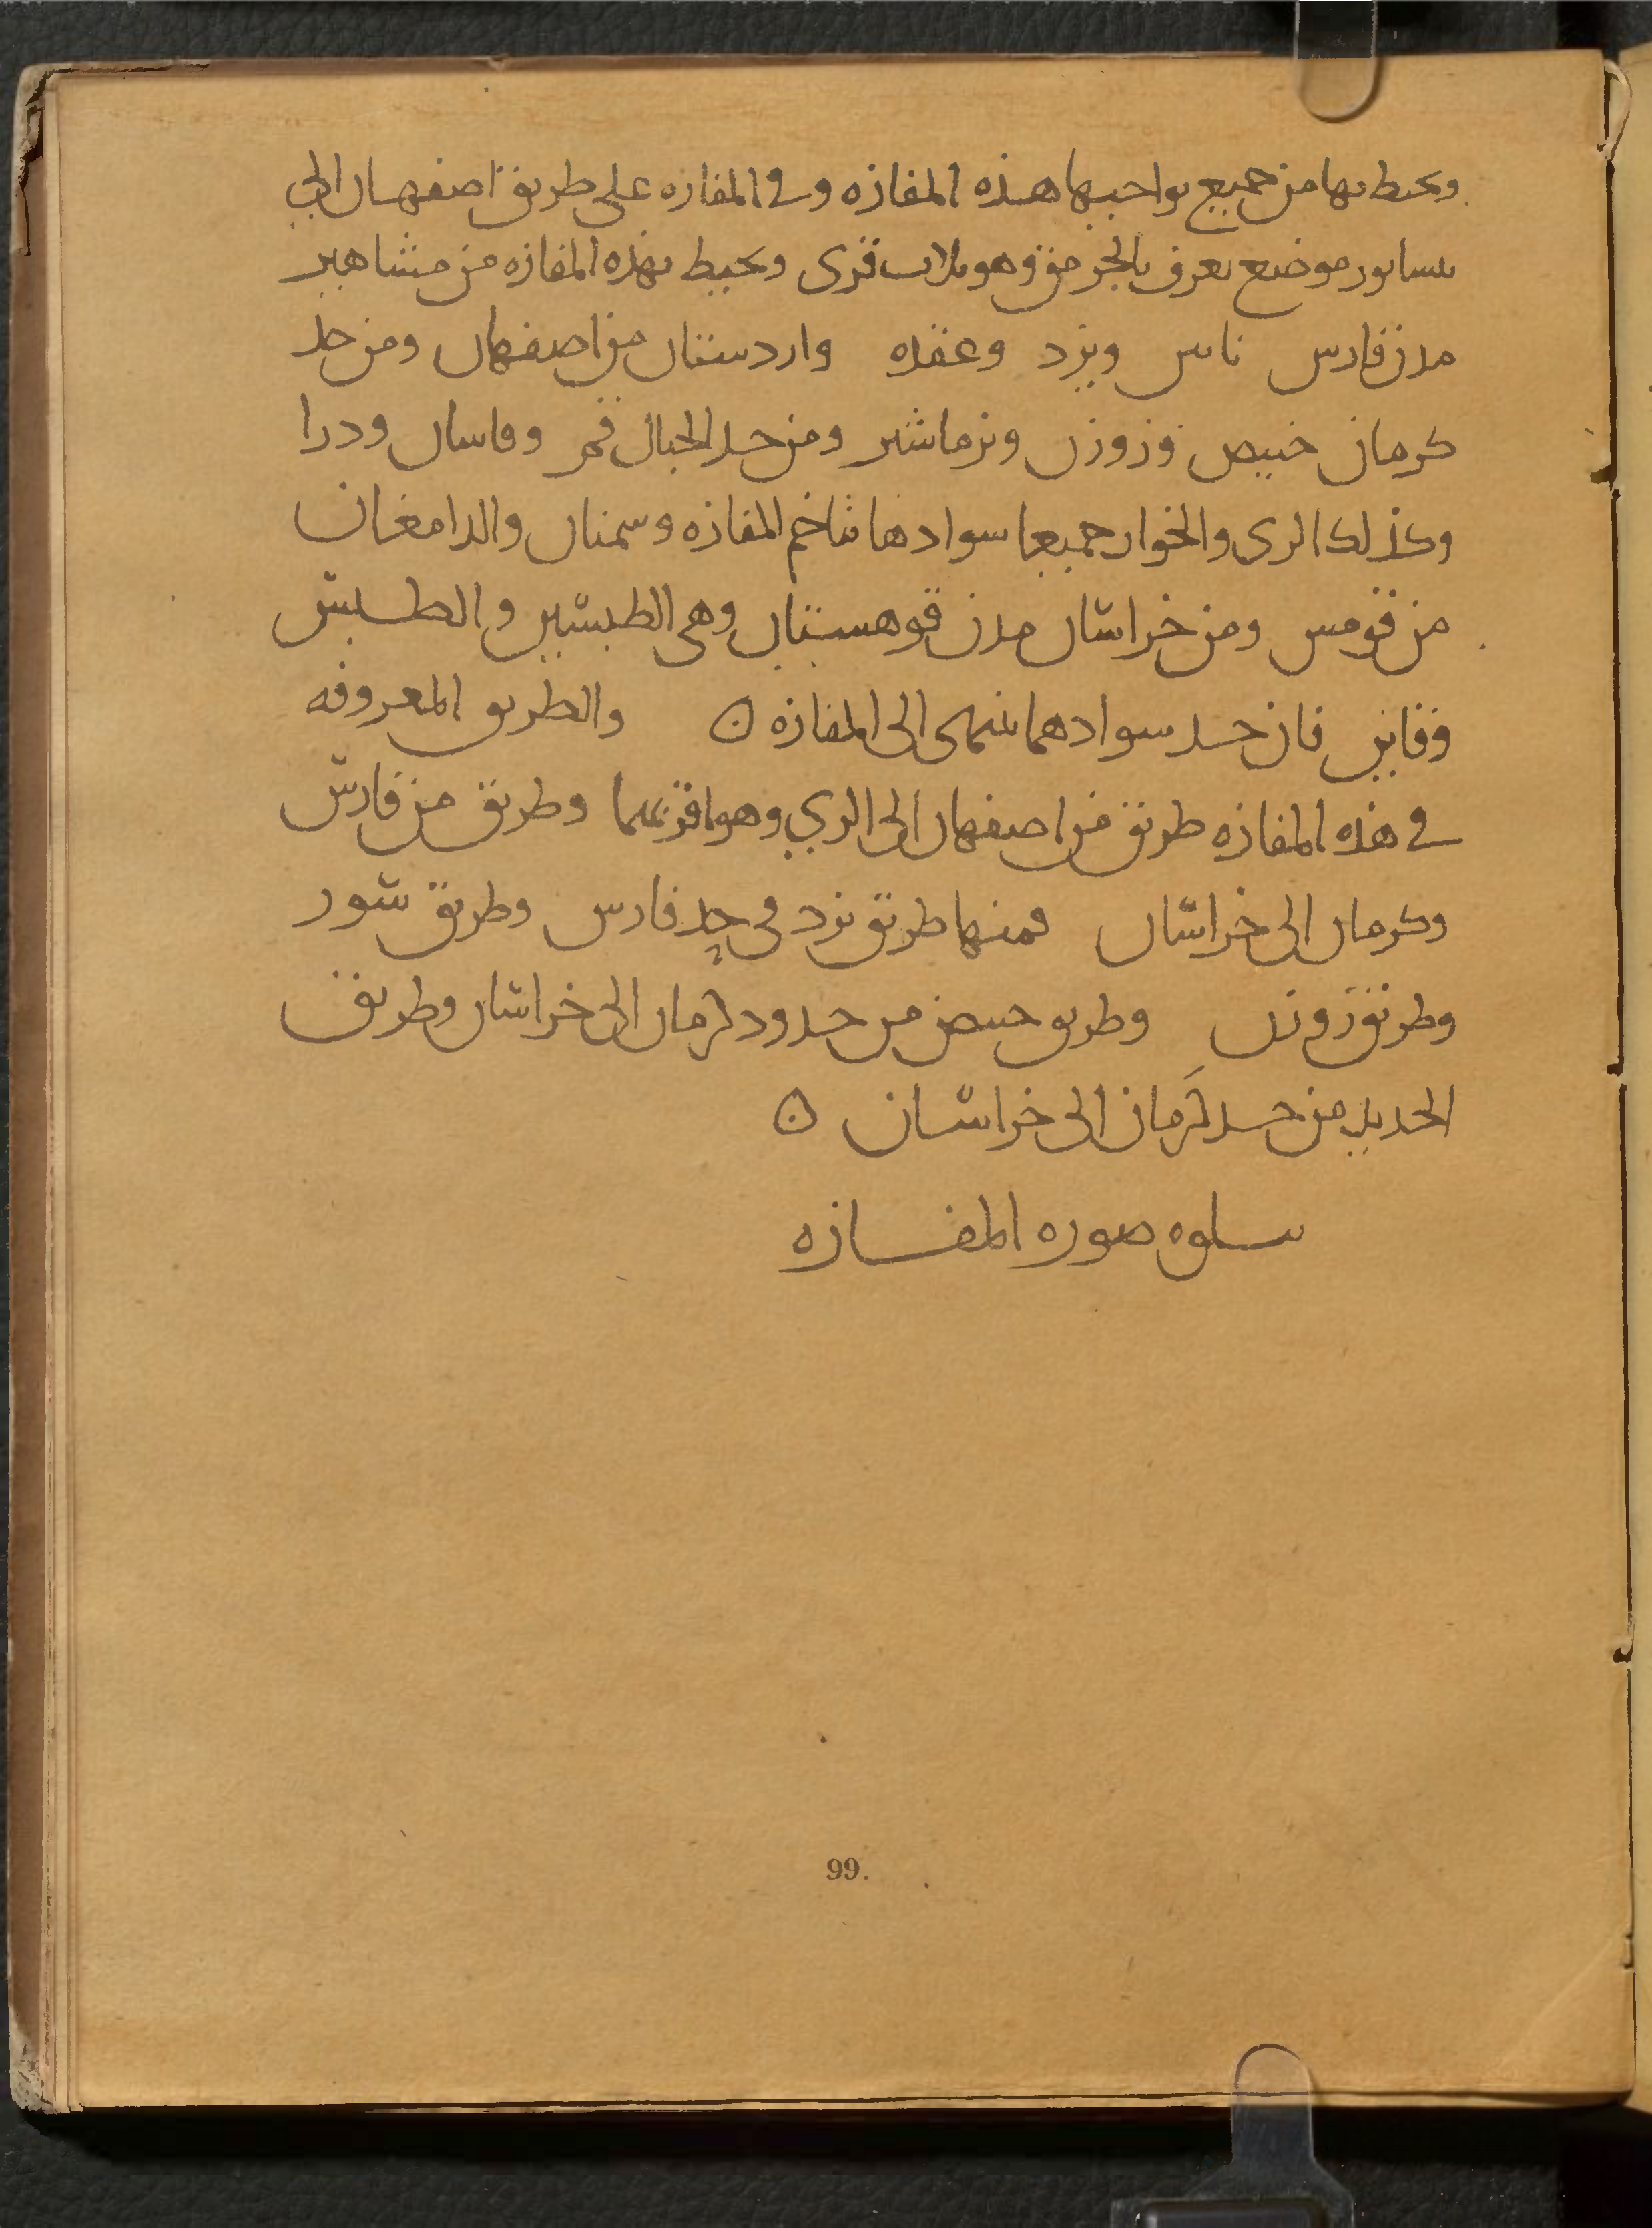 ويحيط بها من جميع نواحيها هذه المفازه وفى المفازه على طريق اصفهان الى
نيسابور موضع يعرف بالجرمق وهو ثلاث قرى ويحيط بهذه المفازه من مشاهير
مدن فارس ناين ويزد وعقده واردستان من اصفهان ومن حد
كرمان خبيص وزوزن ونرماشير ومن حد الجبال قم وقاسان ودرا
وكذلك الرى والخوار جميعا سوادها تتاخم المفازه وسمنان والدامغان
من قومس ومن خراسان مدن قوهستان وهى الطبسين والطبس
وقاين فان حد سوادهما ينتهى الى المفازه ۞ والطريق المعروفه
فى هذه المفازه طريق من اصفهان الى الري وهو اقربهما وطريق من فارس
وكرمان الى خراسان فمنها طريق يزد فى حد فارس وطريق شور
وطريق زوزن وطريق خبيص من حدود كرمان الى خراسان وطريق
الحديد من حد كرمان الى خراسان ۞
يتلوه صوره المفازه
99.